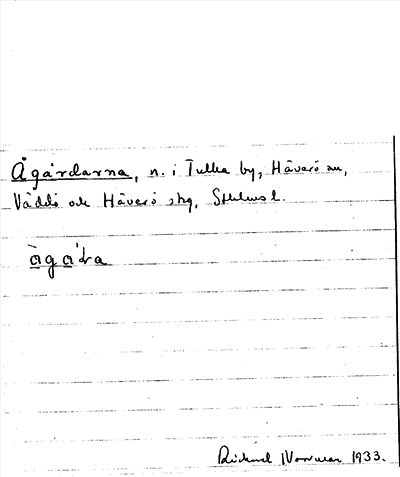 Ågårdarna, n. i Tulka by, Häverö sn,
Väddö och Häverö skg, Sthlms l.
àgáɭa
Rickard Norrman 1933.